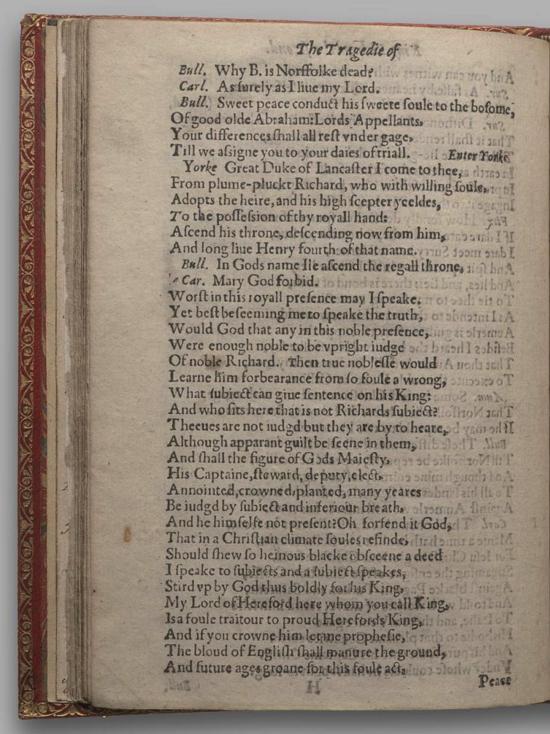 The Tragedie of
Bull. Why B. is Norffolke dead?
Carl. As surely as I liue my Lord.
Bull. Sweet peace conduct his sweete soule to the bosome,
Of good olde Abraham: Lords Appellants,
Your differences shall all rest vnder gage,
Till we assigne you to your daies of triall. Enter Yorke
Yorke Great Duke of Lancaster I come to thee,
From plume-pluckt Richard, who with willing soule,
Adopts the heire, and his high scepter yeeldes,
To the possession of thy royall hand:
Ascend his throne, descending now from him,
And long liue Henry fourth of that name.
Bull. In Gods name Ile ascend the regall throne,
Car. Mary God forbid.
Worst in this royall presence may I speake.
Yet best beseeming me to speake the truth,
Would God that any in this noble presence,
Were enough noble to be vpright iudge
Of noble Richard. Then true noblesse would
Learne him forbearance from so foule a wrong,
What subiect can giue sentence on his King:
And who sits here that is not Richards subiect?
Theeues are not iudgd but they are by to heare,
Although apparant guilt be seene in them,
And shall the figure of Gods Maiesty,
His Captaine, steward, deputy, elect,
Annointed, crowned, planted, many yeares
Be iudgd by subiect and inferiour breath,
And he himselfe not present? Oh forfend it God,
That in a Christian climate soules refinde,
Should shew so heinous blacke obsceene a deed
I speake to subiects and a subiect speakes,
Stird vp by God thus boldly for his King,
My Lord of Hereford here whom you call King,
Is a foule traitour to proud Herefords King,
And if you crowne him let me prophesie,
The bloud of English shall manure the ground,
And future ages groane for this foule act,
H
Peace